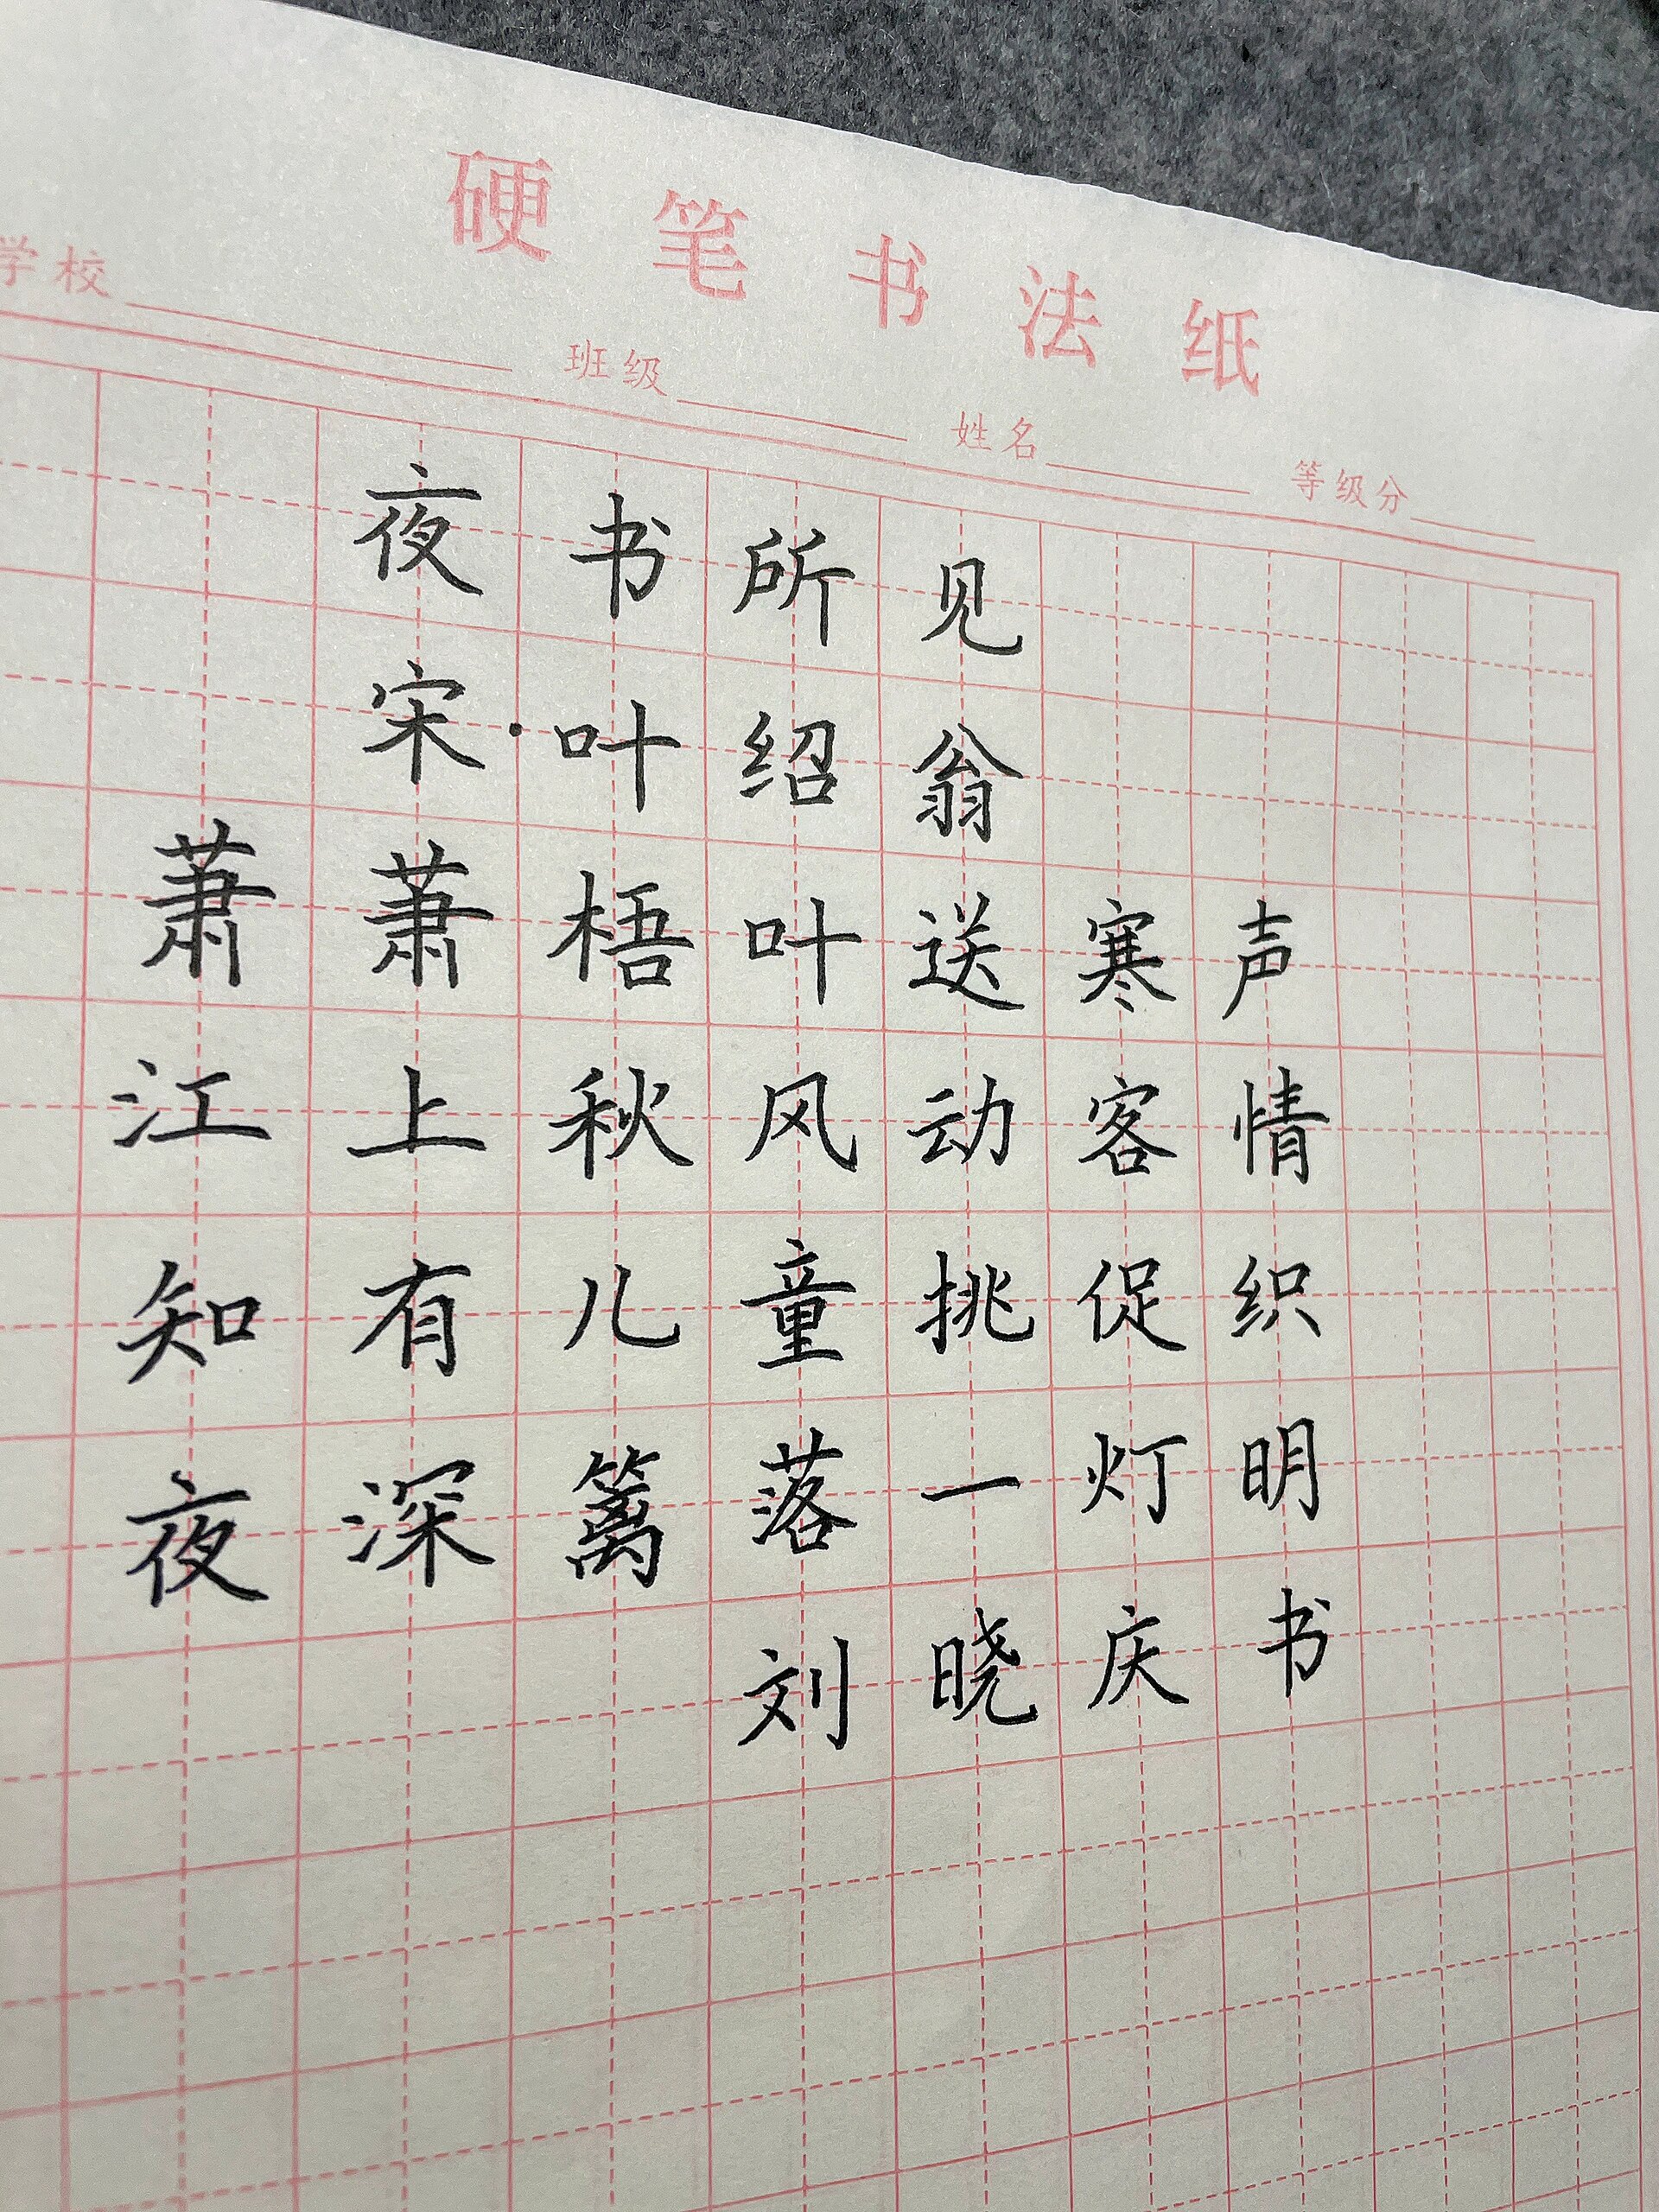 硬笔书法纸
学校 班级 姓名 等级分
夜书所见
宋·叶绍翁
萧萧梧叶送寒声
江上秋风动客情
知有儿童挑促织
夜深篱落一灯明
刘晓庆书